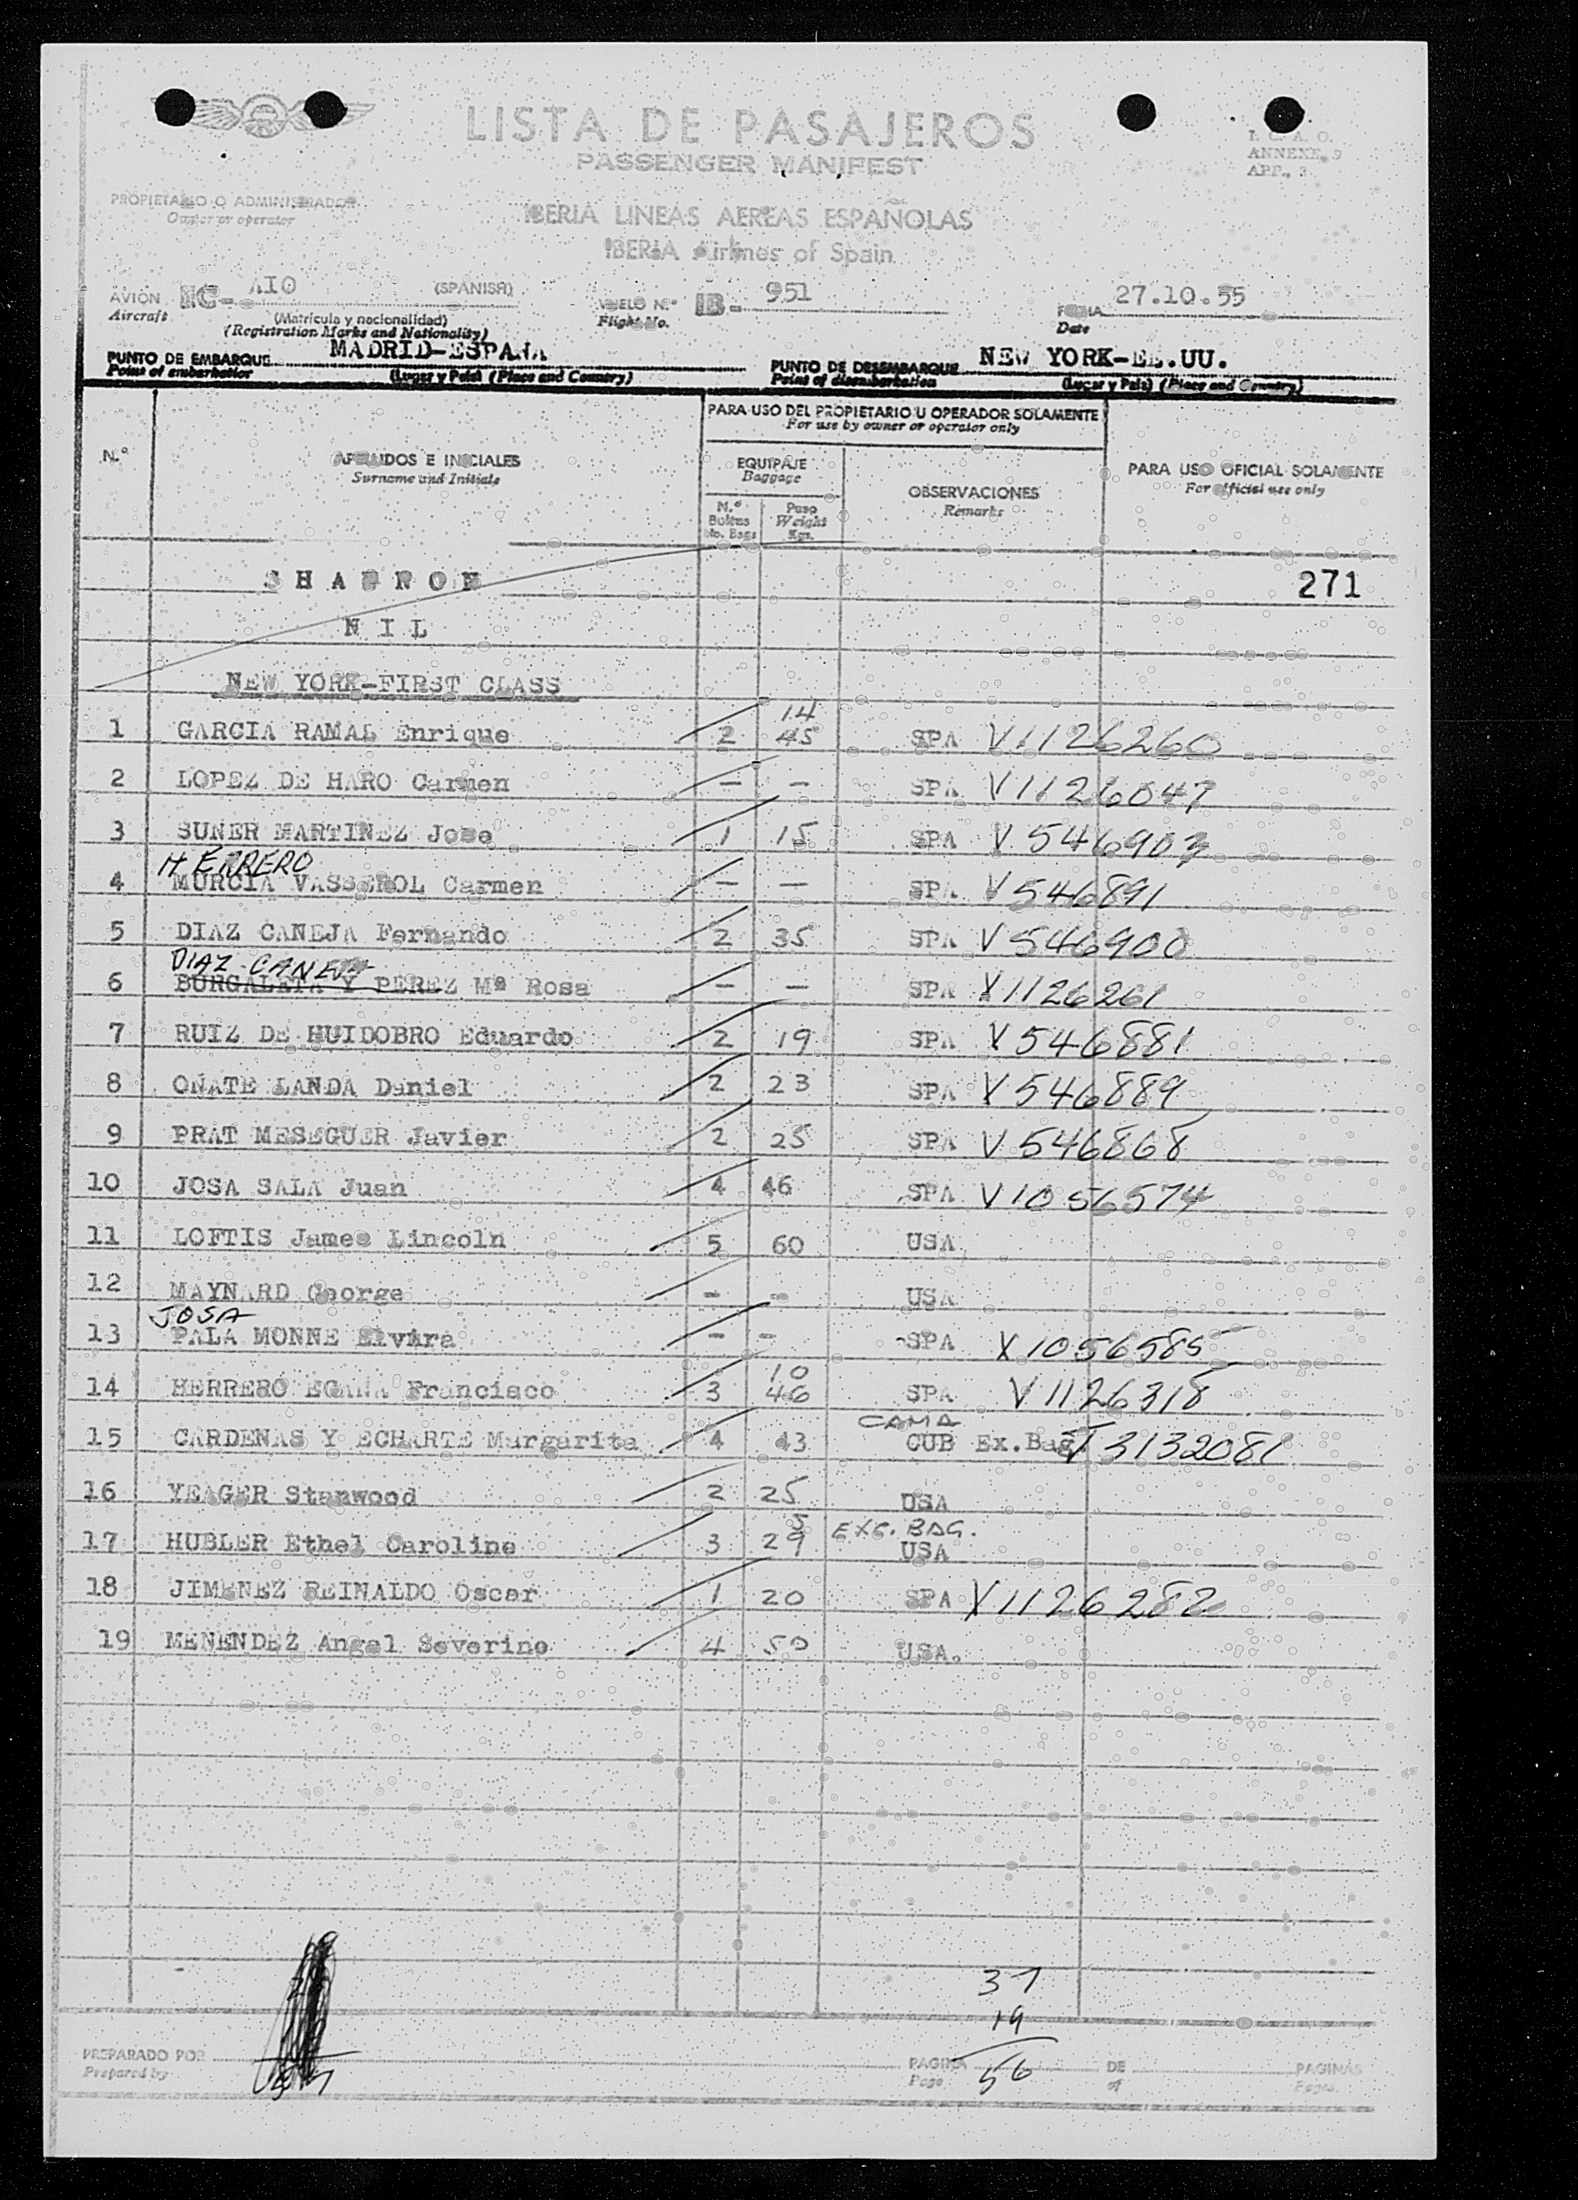 LISTA DE PASAJEROS
PASSENGER MANIFEST
I. C. A. O.
ANNEXE, 9
APP., 3
PROPIETARIO O ADMINISTRADOR
Owner or operator
IBERIA LINEAS AEREAS ESPAÑOLAS
IBERIA Airlines of Spain
AVION EC- AIO (SPANISH) VUELO N.º IB- 951 FECHA 27.10.55
Aircraft (Matrícula y nacionalidad) Flight No. Date
(Registration Marks and Nationality)
PUNTO DE EMBARQUE MADRID-ESPAÑA PUNTO DE DESEMBARQUE NEW YORK-EE.UU.
Point of embarkation (Lugar y País) (Place and Country) Point of disembarkation (Lugar y País) (Place and Country)
PARA USO DEL PROPIETARIO U OPERADOR SOLAMENTE
For use by owner or operator only
N.º APELLIDOS E INICIALES EQUIPAJE OBSERVACIONES PARA USO OFICIAL SOLAMENTE
Surname and Initials Baggage Remarks For official use only
N.º Bultos Peso
No. Bags Weight Kgs.
SHANNON 271
NIL
NEW YORK-FIRST CLASS
14
1 GARCIA RAMAL Enrique 2 45 SPA V1126260
2 LOPEZ DE HARO Carmen - - SPA V1126047
3 SUNER MARTINEZ Jose 1 15 SPA V546903
HERRERO
4 MURCIA VASSEROL Carmen - - SPA V546891
5 DIAZ CANEJA Fernando 2 35 SPA V546900
DIAZ-CANEJA
6 BURGALETA Y PEREZ Mª Rosa - - SPA V1126261
7 RUIZ DE HUIDOBRO Eduardo 2 19 SPA V546881
8 OÑATE LANDA Daniel 2 23 SPA V546889
9 PRAT MESEGUER Javier 2 25 SPA V546868
10 JOSA SALA Juan 4 46 SPA V1056574
11 LOFTIS James Lincoln 5 60 USA
12 MAYNARD George - - USA
JOSA
13 PALA MONNE Elvira - - SPA V1056585
10
14 HERRERO EGAÑA Francisco 3 46 SPA V1126318
CAMA
15 CARDENAS Y ECHARTE Margarita 4 43 CUB Ex.Bag V3132081
16 YEAGER Stanwood 2 25 USA
5 EXC. BAG.
17 HUBLER Ethel Caroline 3 29 USA
18 JIMENEZ REINALDO Oscar 1 20 SPA V1126282
19 MENENDEZ Angel Severino 4 50 USA.
37
19
56
PREPARADO POR PAGINA DE PAGINAS
Prepared by Page of Pages